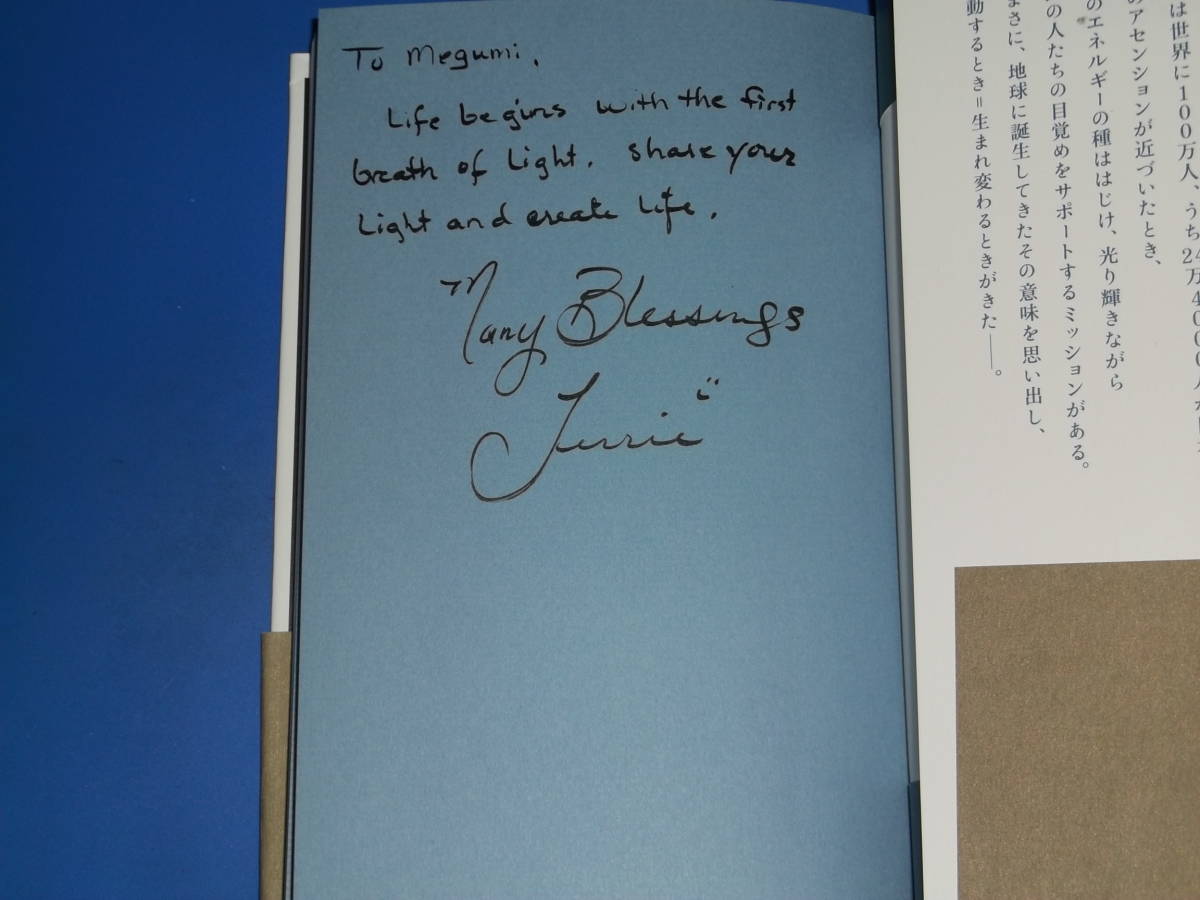 To Megumi.
Life begins with the first
breath of Light. Share your
Light and create Life.
Many Blessings
は世界に100万人、うち24万4000人
のアセンションが近づいたとき、
のエネルギーの種ははじけ、光り輝きながら
の人たちの目覚めをサポートするミッションがある。
まさに、地球に誕生してきたその意味を思い出し、
動するとき＝生まれ変わるときがきた――。